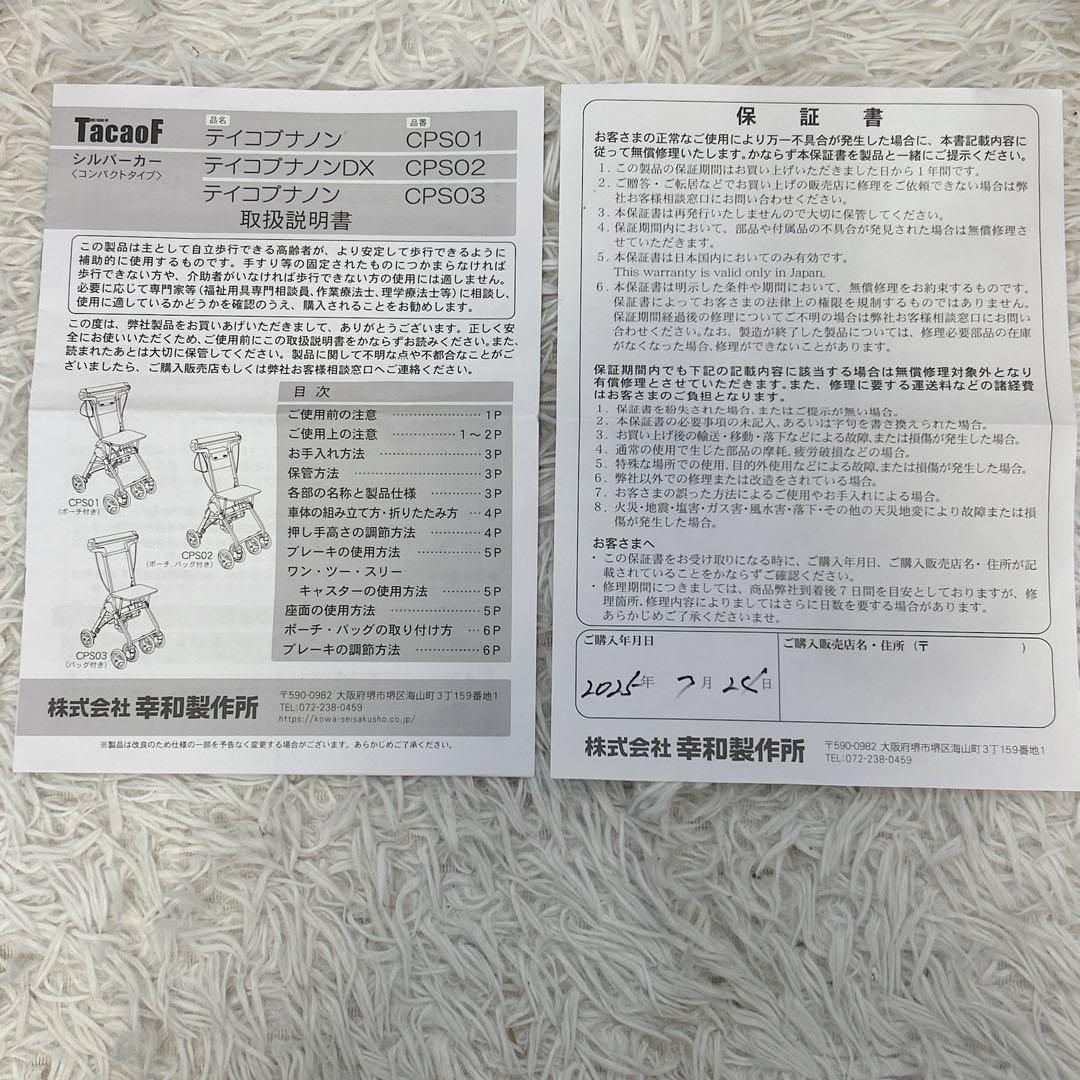 TacaoF
シルバーカー
〈コンパクトタイプ〉
品名 品番
テイコブナノン CPS01
テイコブナノンDX CPS02
テイコブナノン CPS03
取扱説明書
この製品は主として自立歩行できる高齢者が、より安定して歩行できるように
補助的に使用するものです。手すり等の固定されたものにつかまらなければ
歩行できない方や、介助者がいなければ歩行できない方の使用には適しません。
必要に応じて専門家等(福祉用具専門相談員、作業療法士、理学療法士等)に相談し、
使用に適しているかどうかを確認のうえ、購入されることをお勧めします。
この度は、弊社製品をお買いあげいただきまして、ありがとうございます。正しく安
全にお使いいただくため、ご使用前にこの取扱説明書をかならずお読みください。また、
読まれたあとは大切に保管してください。製品に関して不明な点や不都合なことがご
ざいましたら、ご購入販売店もしくは弊社お客様相談窓口へご連絡ください。
CPS01
(ポーチ付き)
CPS02
(ポーチ、バッグ付き)
CPS03
(バッグ付き)
目 次
ご使用前の注意 ……………… 1P
ご使用上の注意 ………… 1～2P
お手入れ方法 ……………… 3P
保管方法 ……………… 3P
各部の名称と製品仕様 ………… 3P
車体の組み立て方・折りたたみ方 … 4P
押し手高さの調節方法 ………… 4P
ブレーキの使用方法 ………… 5P
ワン・ツー・スリー
キャスターの使用方法 ……… 5P
座面の使用方法 ……………… 5P
ポーチ・バッグの取り付け方 … 6P
ブレーキの調節方法 ………… 6P
株式会社 幸和製作所
〒590-0982 大阪府堺市堺区海山町3丁159番地1
TEL:072-238-0459
https://kowa-seisakusho.co.jp/
※製品は改良のため仕様の一部を予告なく変更する場合がございます。あらかじめご了承ください。
保 証 書
お客さまの正常なご使用により万一不具合が発生した場合に、本書記載内容に
従って無償修理いたします。かならず本保証書を製品と一緒にご提示ください。
1. この製品の保証期間はお買い上げいただきました日から1年間です。
2. ご贈答・ご転居などでお買い上げの販売店に修理をご依頼できない場合は弊
社お客様相談窓口にお問い合わせください。
3. 本保証書は再発行いたしませんので大切に保管してください。
4. 保証期間内において、部品や付属品の不具合が発見された場合は無償修理さ
せていただきます。
5. 本保証書は日本国内においてのみ有効です。
This warranty is valid only in Japan.
6. 本保証書は明示した条件や期間において、無償修理をお約束するものです。
保証書によってお客さまの法律上の権限を規制するものではありません。
保証期間経過後の修理についてご不明の場合は弊社お客様相談窓口にお問い
合わせください。なお、製造が終了した製品については、修理必要部品の在庫
がなくなった場合、修理ができないことがあります。
保証期間内でも下記の記載内容に該当する場合は無償修理対象外となり
有償修理とさせていただきます。また、修理に要する運送料などの諸経費
はお客さまのご負担となります。
1. 保証書を紛失された場合、またはご提示が無い場合。
2. 本保証書の必要事項の未記入、あるいは字句を書き換えられた場合。
3. お買い上げ後の輸送・移動・落下などによる故障、または損傷が発生した場合。
4. 通常の使用で生じた部品の摩耗、疲労破損などの場合。
5. 特殊な場所での使用、目的外使用などによる故障、または損傷が発生した場合。
6. 弊社以外での修理または改造をされている場合。
7. お客さまの誤った方法によるご使用やお手入れによる場合。
8. 火災・地震・塩害・ガス害・風水害・落下・その他の天災地変により故障または損
傷が発生した場合。
お客さまへ
・この保証書をお受け取りになる時に、ご購入年月日、ご購入販売店名・住所が記
載されていることをかならずご確認ください。
・修理期間につきましては、商品弊社到着後7日間を目安としておりますが、修
理箇所、修理内容によりましてはさらに日数を要する場合があります。
あらかじめご了承くださいませ。
ご購入年月日
2025年 7月 25日
ご購入販売店名・住所(〒 )
株式会社 幸和製作所
〒590-0982 大阪府堺市堺区海山町3丁159番地1
TEL:072-238-0459